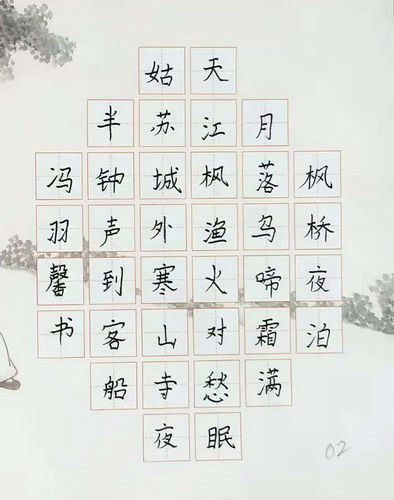 枫桥夜泊
月落乌啼霜满
天江枫渔火对愁眠
姑苏城外寒山寺夜
半钟声到客船
冯羽馨书
02